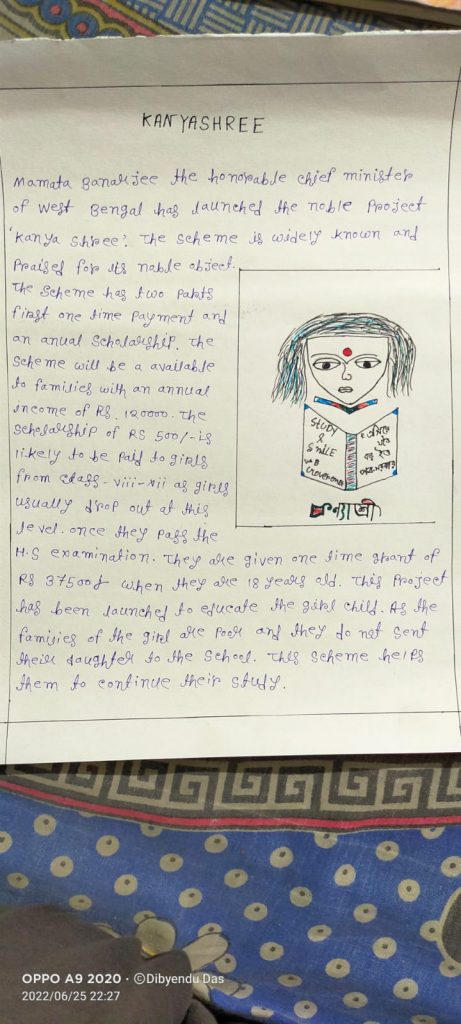 KANYASHREE
Mamata Banarjee the honorable chief minister
of West Bengal has launched the noble Project
'Kanya Shree'. The scheme is widely known and
Praised for its nable object.
The scheme has two parts
first one time Payment and
an anual Scholarship. The
Scheme will be a available
to families with an annual
income of RS. 120000. The
Scholarship of RS 500/- is
likely to be paid to girls
from class-viii-xii as girls
usually drop out at this
level. once they pass the
H.S examination. They are given one time grant of
RS 37500/- when they are 18 years old. This Project
has been launched to educate the girl child. As the
families of the girl are poor and they do not sent
their daughter to the School. This scheme helps
them to continue their study.
STUDY
&
SMILE
W.B
Government
বড় হও
কন্যাশ্রী
OPPO A9 2020 · ©Dibyendu Das
2022/06/25 22:27